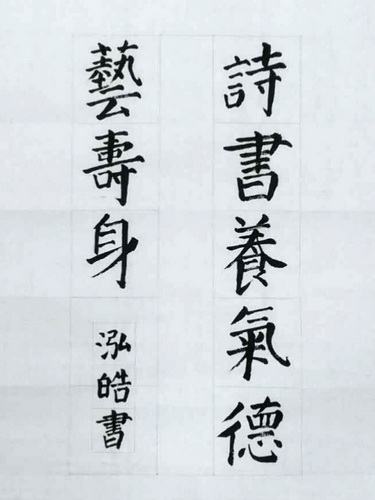 詩書養氣德
藝壽身
泓皓書